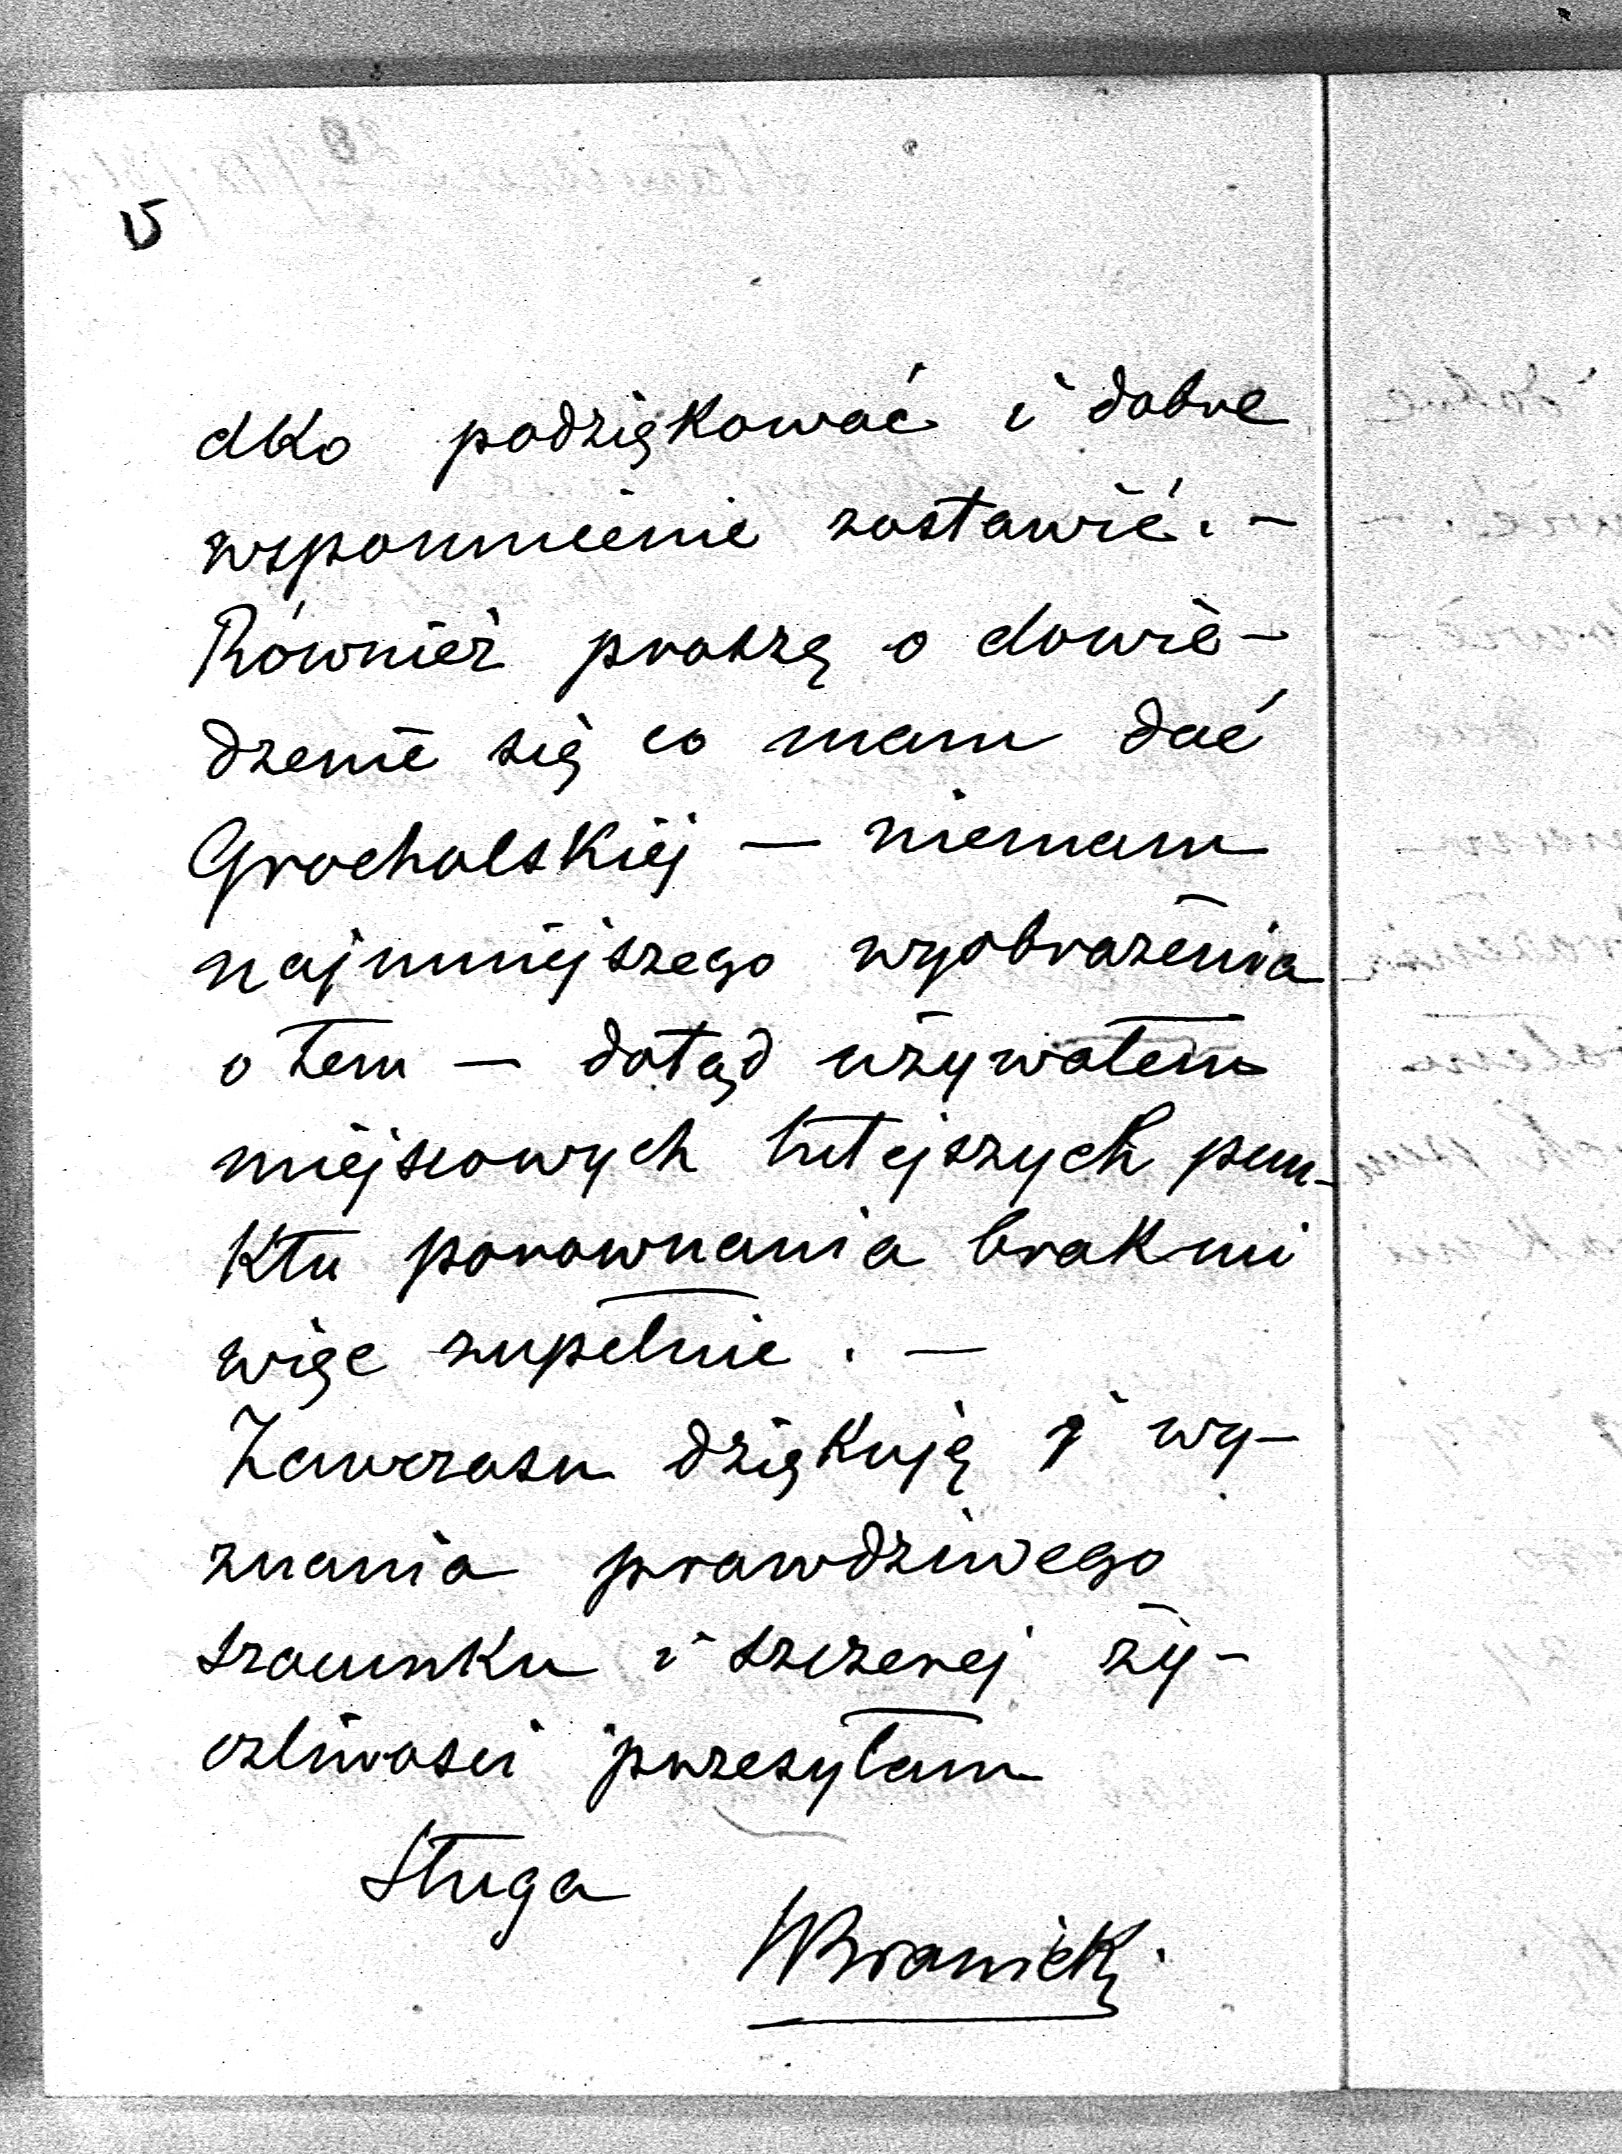 dko podziękować i dobre
wspomnienie zostawić. –
Również proszę o dowie-
dzenie się co mam dać
Grocholskiej – niemam
najmniejszego wyobrażenia
o tem – dotąd używałem
miejscowych tutejszych pun-
ktu porownania brak mi
więc zupełnie. –
Zawczasu dziękuję i wy-
znania prawdziwego
szacunku i szczerej ży-
czliwosci przesyłam
Sługa
WBranicki